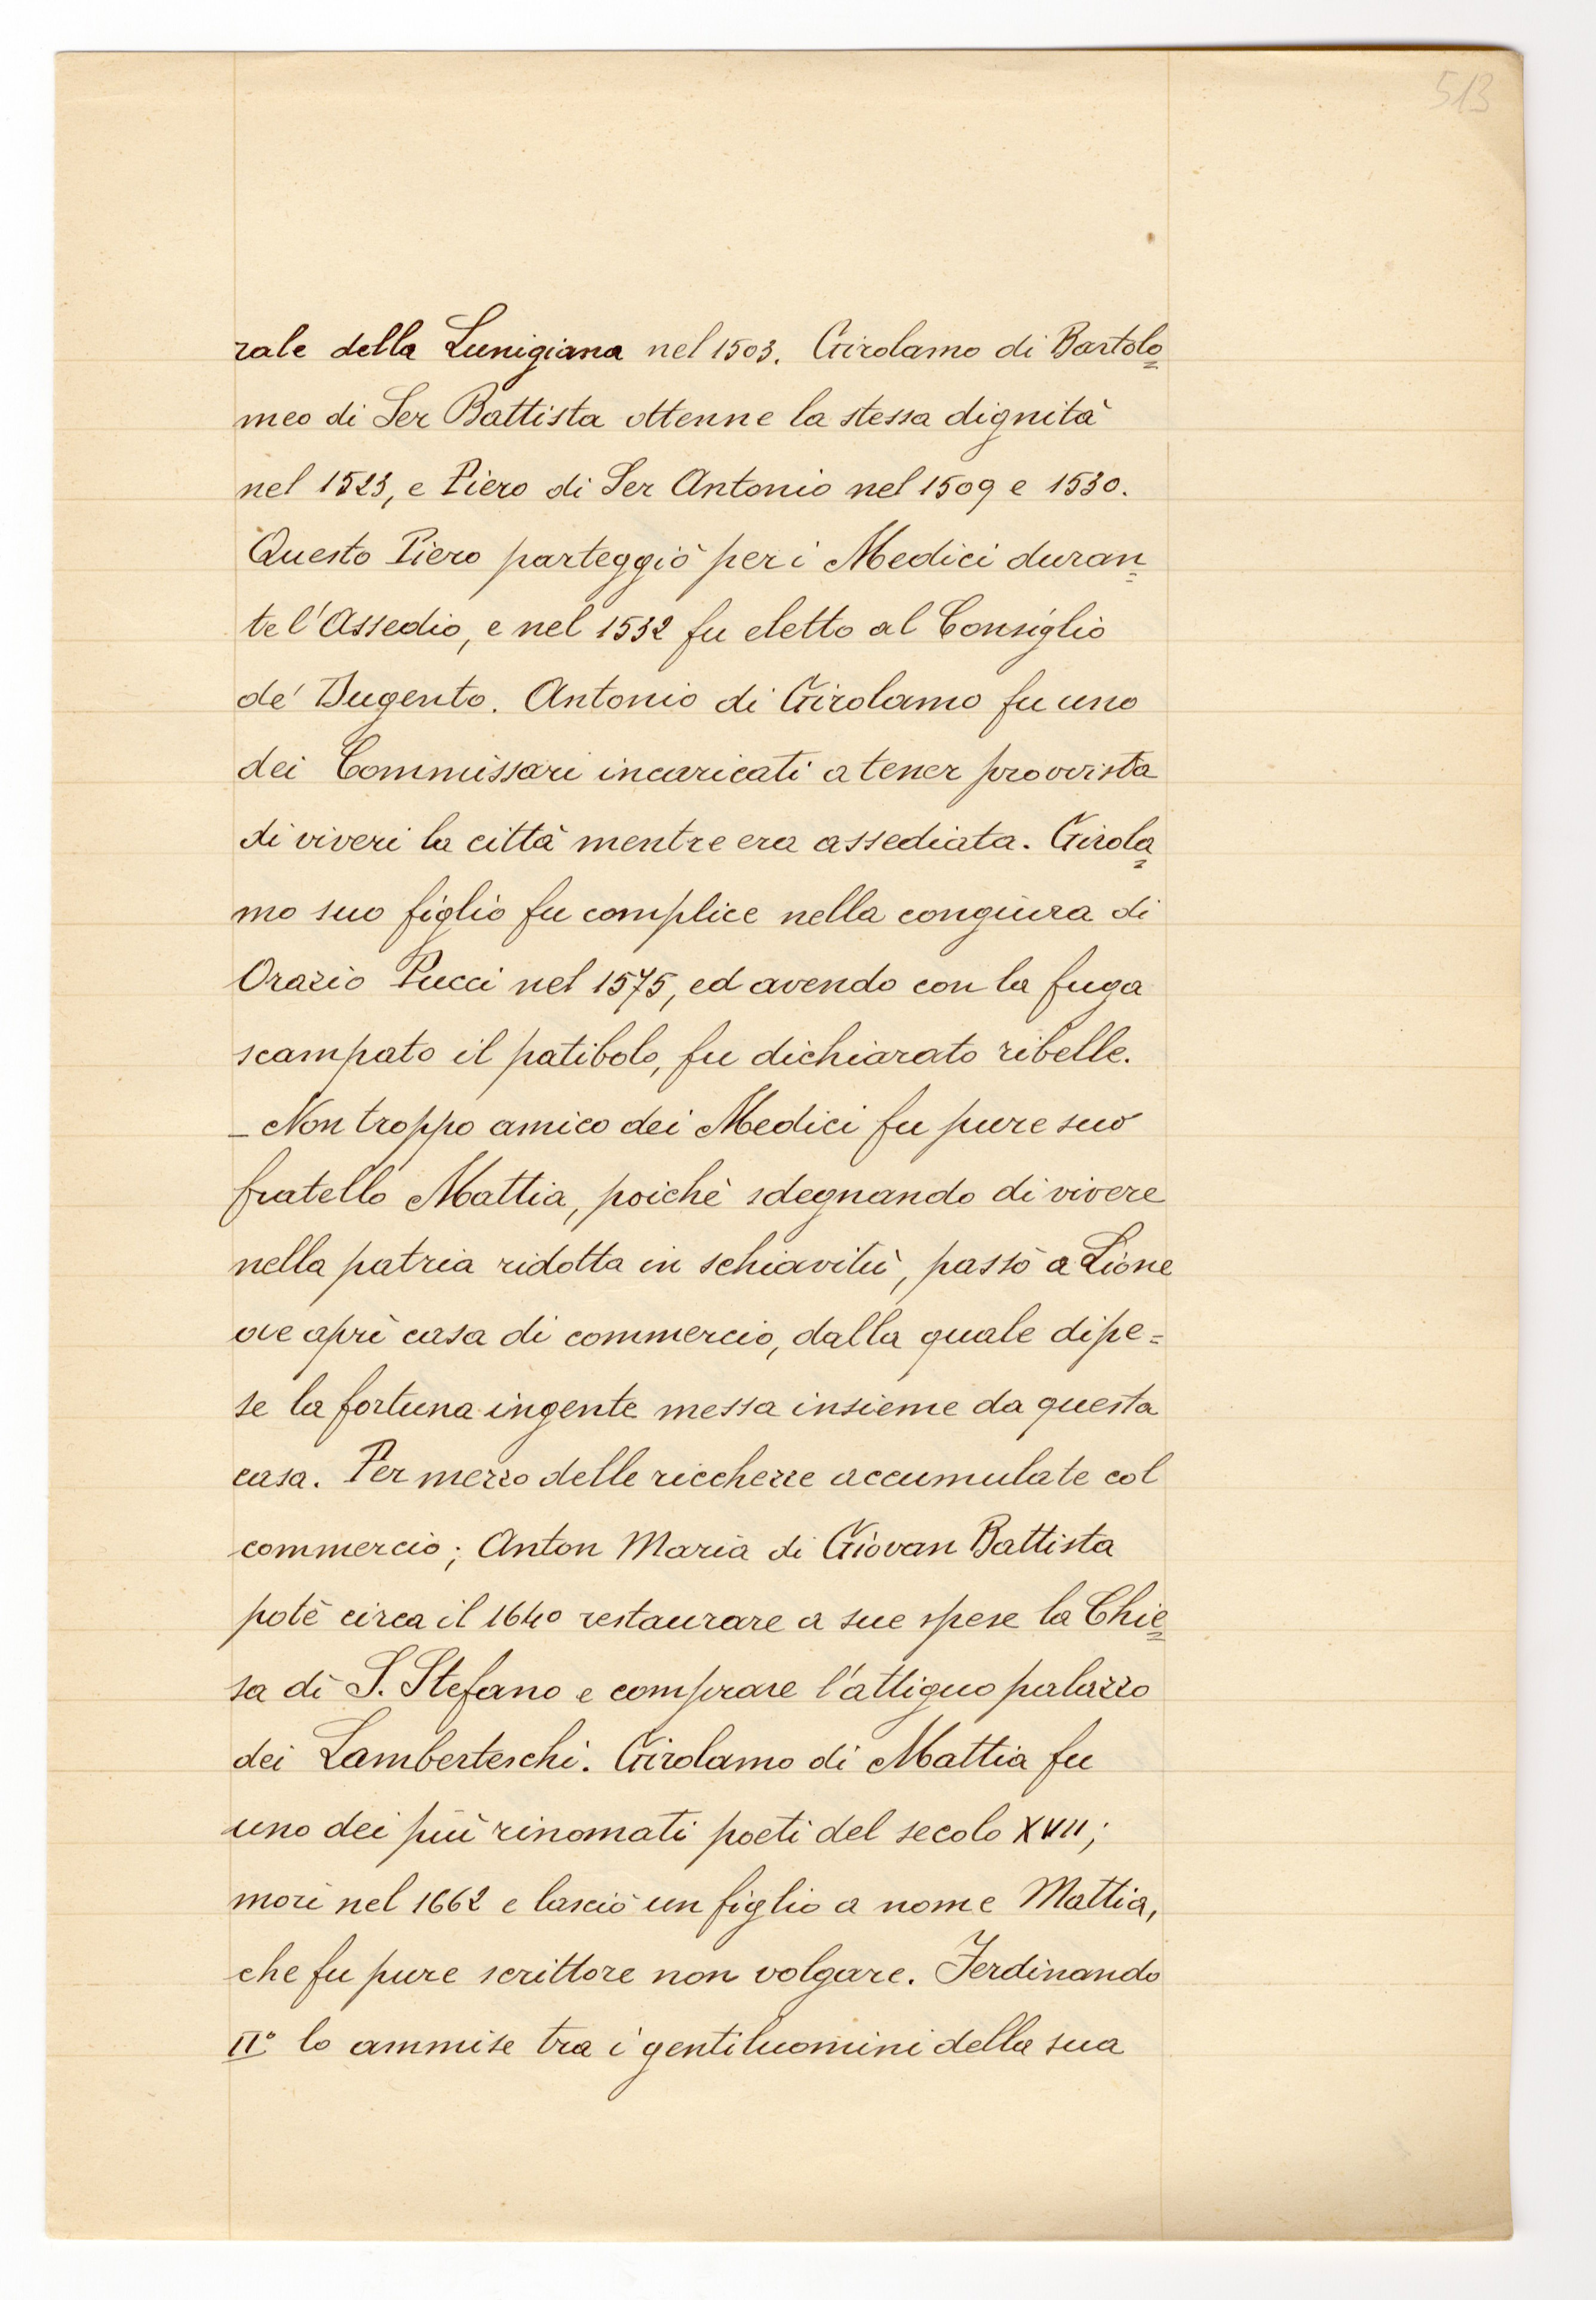 513
rale della Lunigiana nel 1503. Girolamo di Bartolo=
meo di Ser Battista ottenne la stessa dignità
nel 1523, e Piero di Ser Antonio nel 1509 e 1530.
Questo Piero parteggiò per i Medici duran=
te l'Assedio, e nel 1532 fu eletto al Consiglio
de' Dugento. Antonio di Girolamo fu uno
dei Commissari incaricati a tener provvista
di viveri la città mentre era assediata. Girola=
mo suo figlio fu complice nella congiura di
Orazio Pucci nel 1575, ed avendo con la fuga
scampato il patibolo, fu dichiarato ribelle.
– Non troppo amico dei Medici fu pure suo
fratello Mattia, poichè sdegnando di vivere
nella patria ridotta in schiavitù, passò a Lione
ove aprì casa di commercio, dalla quale dipe=
se la fortuna ingente messa insieme da questa
casa. Per mezzo delle ricchezze accumulate col
commercio; Anton Maria di Giovan Battista
potè circa il 1640 restaurare a sue spese la Chie=
sa di S. Stefano e comprare l'attiguo palazzo
dei Lamberteschi. Girolamo di Mattia fu
uno dei più rinomati poeti del secolo XVII;
morì nel 1662 e lasciò un figlio a nome Mattia,
che fu pure scrittore non volgare. Ferdinando
II° lo ammise tra i gentiluomini della sua